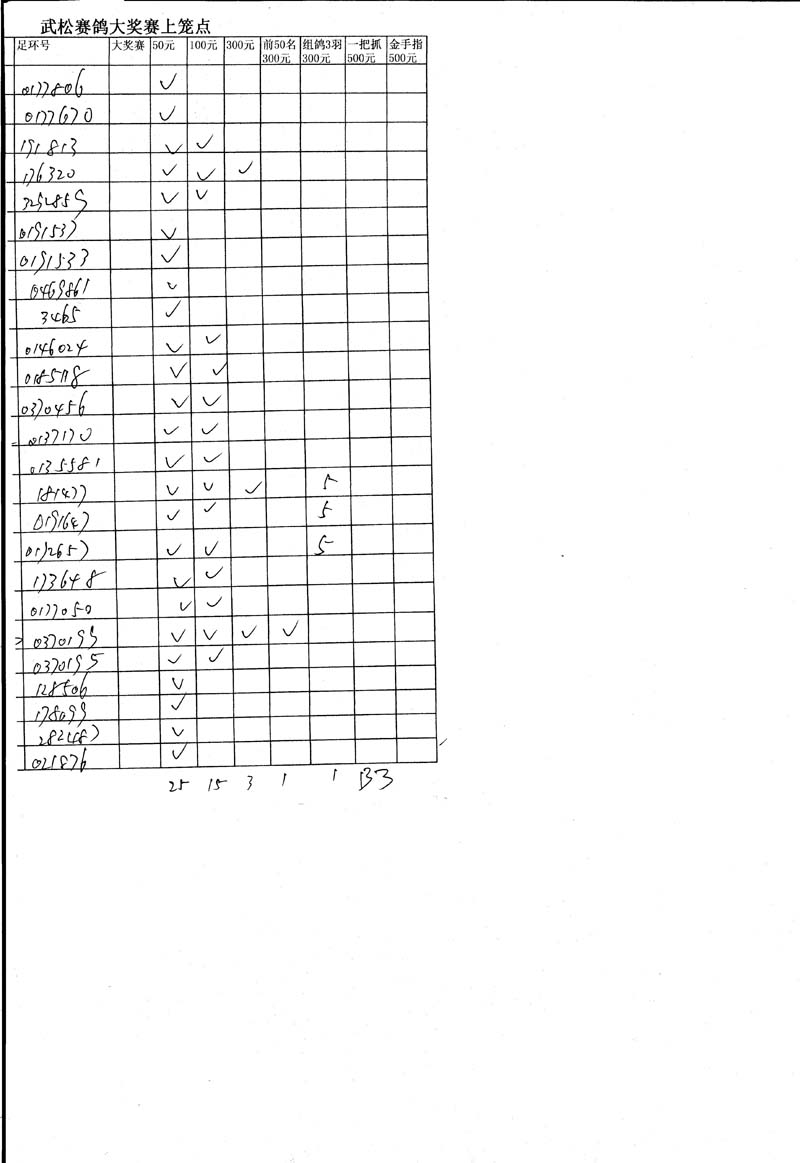 武松赛鸽大奖赛上笼点
足环号 大奖赛 50元 100元 300元 前50名 组鸽3羽 一把抓 金手指
300元 300元 500元 500元
0177806 ✓
0177670 ✓
191813 ✓ ✓
176320 ✓ ✓ ✓
✓ ✓
0191537 ✓
0191533 ✓
0469861 ✓
3465 ✓
0146024 ✓ ✓
✓ ✓
0370456 ✓ ✓
0137170 ✓ ✓
0135581 ✓ ✓
181477 ✓ ✓ ✓ 5
0191647 ✓ ✓ 5
0192657 ✓ ✓ 5
173648 ✓ ✓
0177050 ✓ ✓
0370199 ✓ ✓ ✓ ✓
0370195 ✓ ✓
128506 ✓
178099 ✓
282487 ✓
021876 ✓
25 15 3 1 1 B3